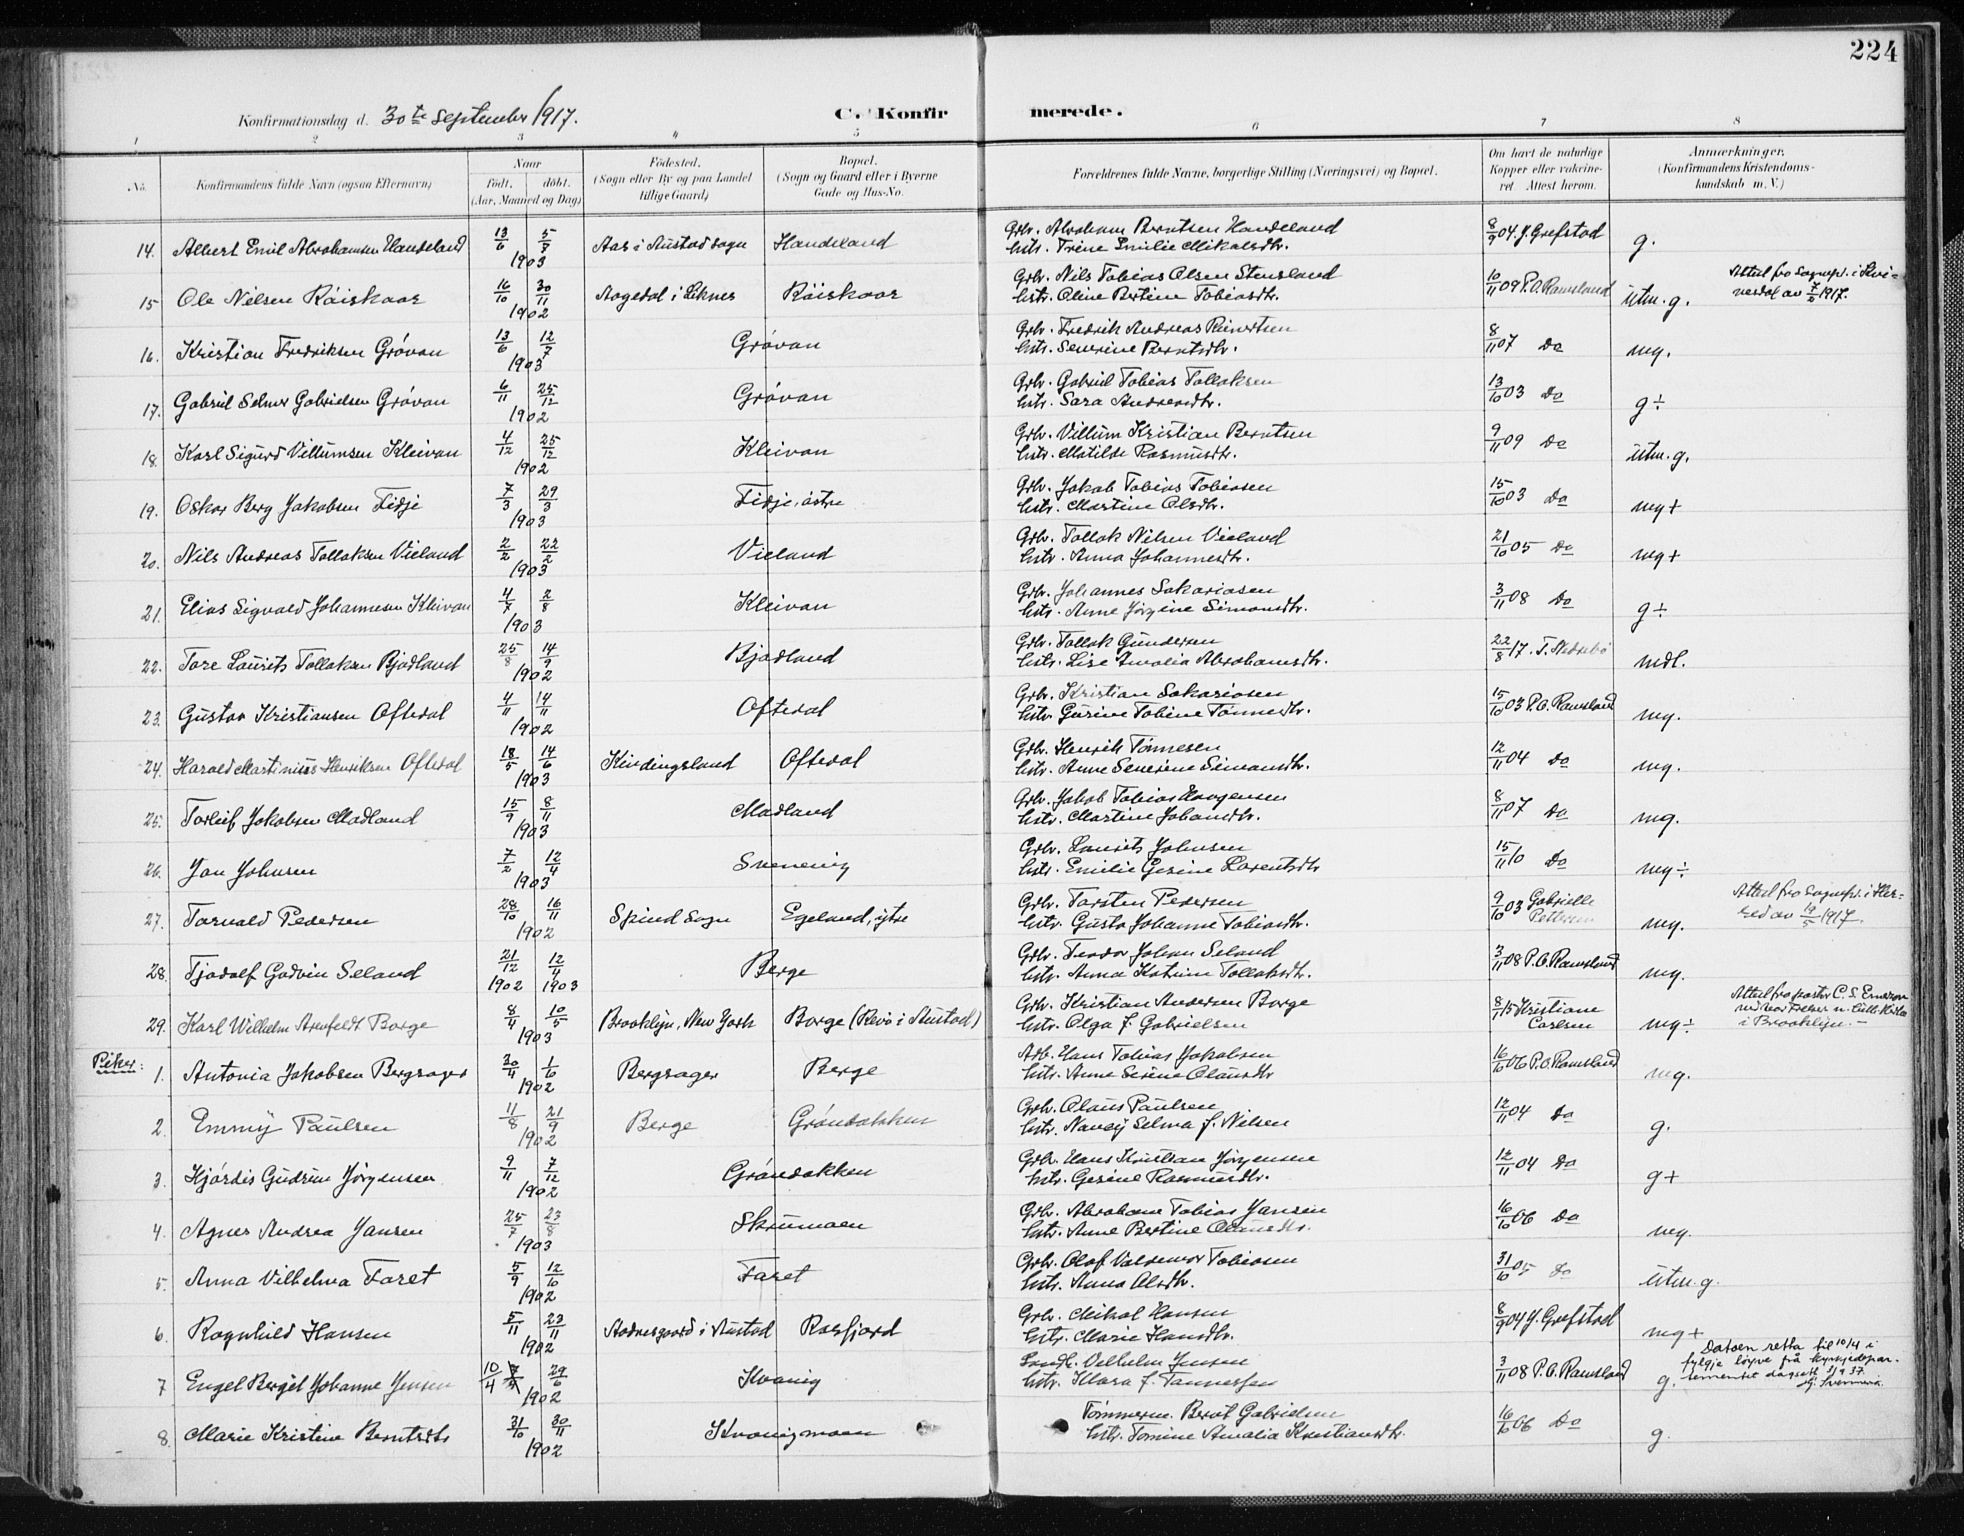 224
Konfirmationsdag d. 30te September 1917.
C. Konfir merede.
1 2 3 4 5 6 7 8
No.
Konfirmandens fulde Navn (ogsaa Efternavn)
Naar
født. døbt.
(Aar, Maaned og Dag)
Fødested.
(Sogn eller By og paa Landet
tillige Gaard)
Bopæl.
(Sogn og Gaard eller i Byerne
Gade og Hus-No.
Forældrenes fulde Navne, borgerlige Stilling (Næringsvei) og Bopæl.
Om havt de naturlige
Kopper eller vakcine-
ret Attest herom.
Anmærkninger.
(Konfirmandens Kristendoms-
kundskab m. V.)
14. Albert Emil Abrahamsen Handeland 13/6 5/7 1903 Aas i Austad sogn Handeland
Grb. Abraham Berntsen Handeland
hstr. Trine Emilie Mikalsdtr. 8/9 04. J. Grefstad g.
15 Ole Nilsen Röiskaar 16/10 30/11 1902 Aagedal i Liknes Röiskaar
Grb. Nils Tobias Olsen Stensland
hstr. Oline Bertine Tobiasdtr. 10/11 09 P.O. Ramsland utm. g. Attest fra Sognepr. i Kvi-
nesdal av 1917.
16. Kristian Fredriksen Gróvan 13/6 12/7 1903 Gróvan
Grb. Fredrik Andreas Reinertsen
hstr. Severine Berntsdtr. 8/11 07 Do mg.
17. Gabriel Selmer Gabrielsen Gróvan 6/11 25/12 1902 Gróvan
Grb. Gabriel Tobias Tollaksen
hstr. Sara Andreasdtr. 13/10 03 Do g÷
18. Karl Sigurd Villumsen Kleivan 4/12 25/12 1902 Kleivan
Grb. Villum Kristian Berntsen
hstr. Matilde Rasmusdtr. 9/11 09 Do utm. g.
19. Oskar Berg Jakobsen Fidje 7/3 29/3 1903 Fidje, östre
Grb. Jakob Tobias Tobiasen
hstr. Martine Olsdtr. 15/10 03 Do mg+
20. Nils Andreas Tollaksen Vieland 2/2 22/2 1903 Vieland
Grb. Tollak Nilsen Vieland
hstr. Anna Johannesdtr. 21/10 05 Do mg+
21. Elias Sigvald Johannesen Kleivan 4/7 2/8 1903 Kleivan
Grb. Johannes Sakariasen
hstr. Anne Jörgine Simonsdtr. 3/11 08 Do g÷
22. Tore Laurits Tollaksen Bjodland 25/8 14/9 1902 Bjodland
Grb. Tollak Gundersen
hstr. Lise Amalia Abrahamsdtr. 22/8 17. T. mdl.
23. Gustav Kristiansen Oftedal 4/11 14/11 1902 Oftedal
Grb. Kristian Sakariasen
hstr. Gurine Tobine Tönnesdtr. 15/10 03 P.O. Ramsland mg.
24. Harald Martinius Henriksen Oftedal 18/5 14/6 1903 Kindingsland Oftedal
Grb. Henrik Tönnesen
hstr. Anne Severine Simonsdtr. 12/11 04 Do mg.
25. Torleif Jakobsen Madland 15/9 8/11 1903 Madland
Grb. Jakob Tobias Haagensen
hstr. Martine Johansdtr. 8/11 07 Do mg.
26. Jan Johnsen 7/2 12/4 1903 Svenevig
Grb. Laurits Johnsen
hstr. Emilie Gesine Larentsdtr 15/11 10 Do mg÷
27. Torvald Pedersen 28/10 16/11 1902 Spind Sogn Egeland, ytre
Grb. Torsten Pedersen
hstr. Gusta Johanne Tobiasdtr. 9/10 03 Gabrielle
Pettersen mg. Attest fra Sognepr. i Her-
red av 1917.
28. Tjodolf Godvin Seland 21/12 1902 12/4 1903 Berge
Grb. Teodor Johan Seland
hstr. Anna Katrine Tollaksdtr. 3/11 08 P.O. Ramsland mg.
29. Karl Wilhelm Arenfeldt Borge 8/4 10/5 1903 Brooklyn, New York Borge (Revö i Austad)
Grb. Kristian Andersen Borge
hstr. Olga f. Gabrielsen 8/8 15 Kristiane
Carlsen mg÷ Attest fra pastor C. S.
i Brooklyn. –
Piker:
1. Antonia Jakobsen Bergsager 30/4 1/6 1902 Bergsager Berge
Arb. Hans Tobias Jakobsen
hstr. Anne Serine Olausdtr 16/10 06 P.O. Ramsland mg.
2. Emmy Paulsen 11/8 21/9 1902 Berge Gröndokken
Grb. Olaus Paulsen
hstr. Nancy Selma f. Nilsen 12/11 04 Do g.
3. Hjórdis Gudrun Jörgensen 9/11 7/12 1902 Gróndokken
Grb. Hans Kristian Jörgensen
hstr. Gesine Rasmusdtr. 12/11 04 Do g+
4. Agnes Andrea Jansen 25/7 23/8 1903 Skrumoen
Grb. Abraham Tobias Jansen
hstr. Anne Bertine Olausdtr. 16/10 06 Do mg.
5. Anna Vilhelma Faret 5/9 12/10 1902 Faret
Grb. Olaf Valdemar Tobiasen
hstr. Anna Olsdtr. 31/10 05 Do utm. g.
6. Ragnhild Hansen 5/11 23/11 1902 Aadnesgaard i Austad Rosfjord
Grb. Mikal Hansen
hstr. Marie Hansdtr. 8/9 04 J. Grefstad mg+
7 Engel Bergit Johanne Jensen 10/4 29/6 1902 Kvavig
Landh. Vilhelm Jensen
hstr. Klara f. Tannessen 3/11 08 P.O. Ramsland g. Datoen retta til 10/4 i
fylgje löyve frå Kyrkjedepar-
tementet dagsett 1937.
8. Marie Kristine Berntsdtr 31/10 30/11 1902 Kvavigmoen
Tömmerm. Bernt Gabrielsen
hstr. Tomine Amalia Kristiansdtr. 16/10 06 Do g.